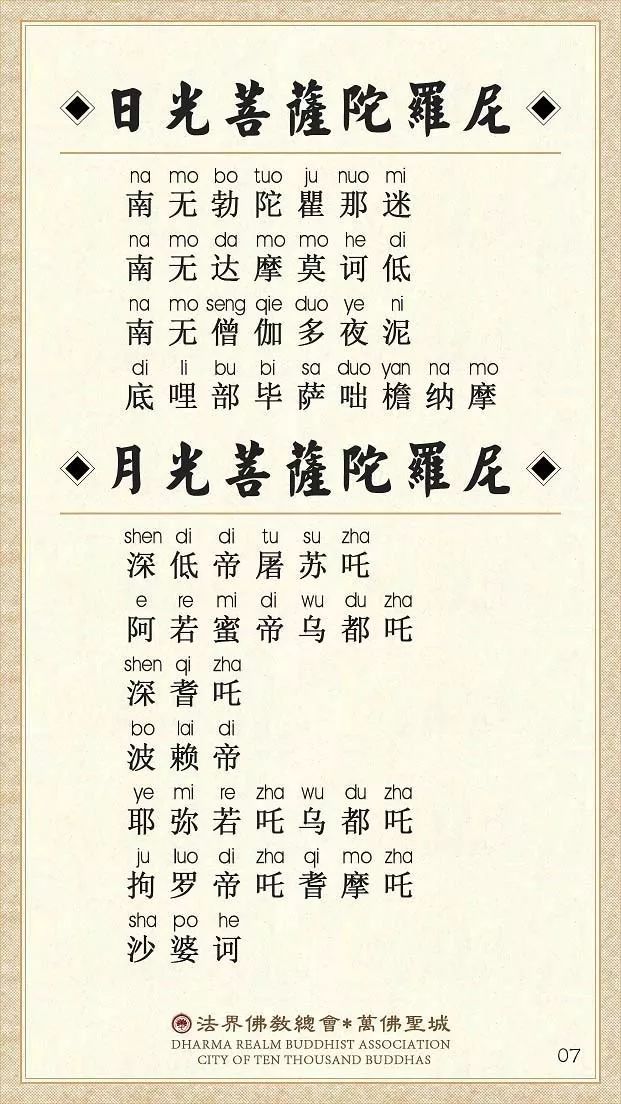 日光菩薩陀羅尼
na mo bo tuo ju nuo mi
南无勃陀瞿那迷
na mo da mo mo he di
南无达摩莫诃低
na mo seng qie duo ye ni
南无僧伽多夜泥
di li bu bi sa duo yan na mo
底哩部毕萨咄檐纳摩
月光菩薩陀羅尼
shen di di tu su zha
深低帝屠苏吒
e re mi di wu du zha
阿若蜜帝乌都吒
shen qi zha
深耆吒
bo lai di
波赖帝
ye mi re zha wu du zha
耶弥若吒乌都吒
ju luo di zha qi mo zha
拘罗帝吒耆摩吒
sha po he
沙婆诃
法界佛教總會*萬佛聖城
DHARMA REALM BUDDHIST ASSOCIATION
CITY OF TEN THOUSAND BUDDHAS
07